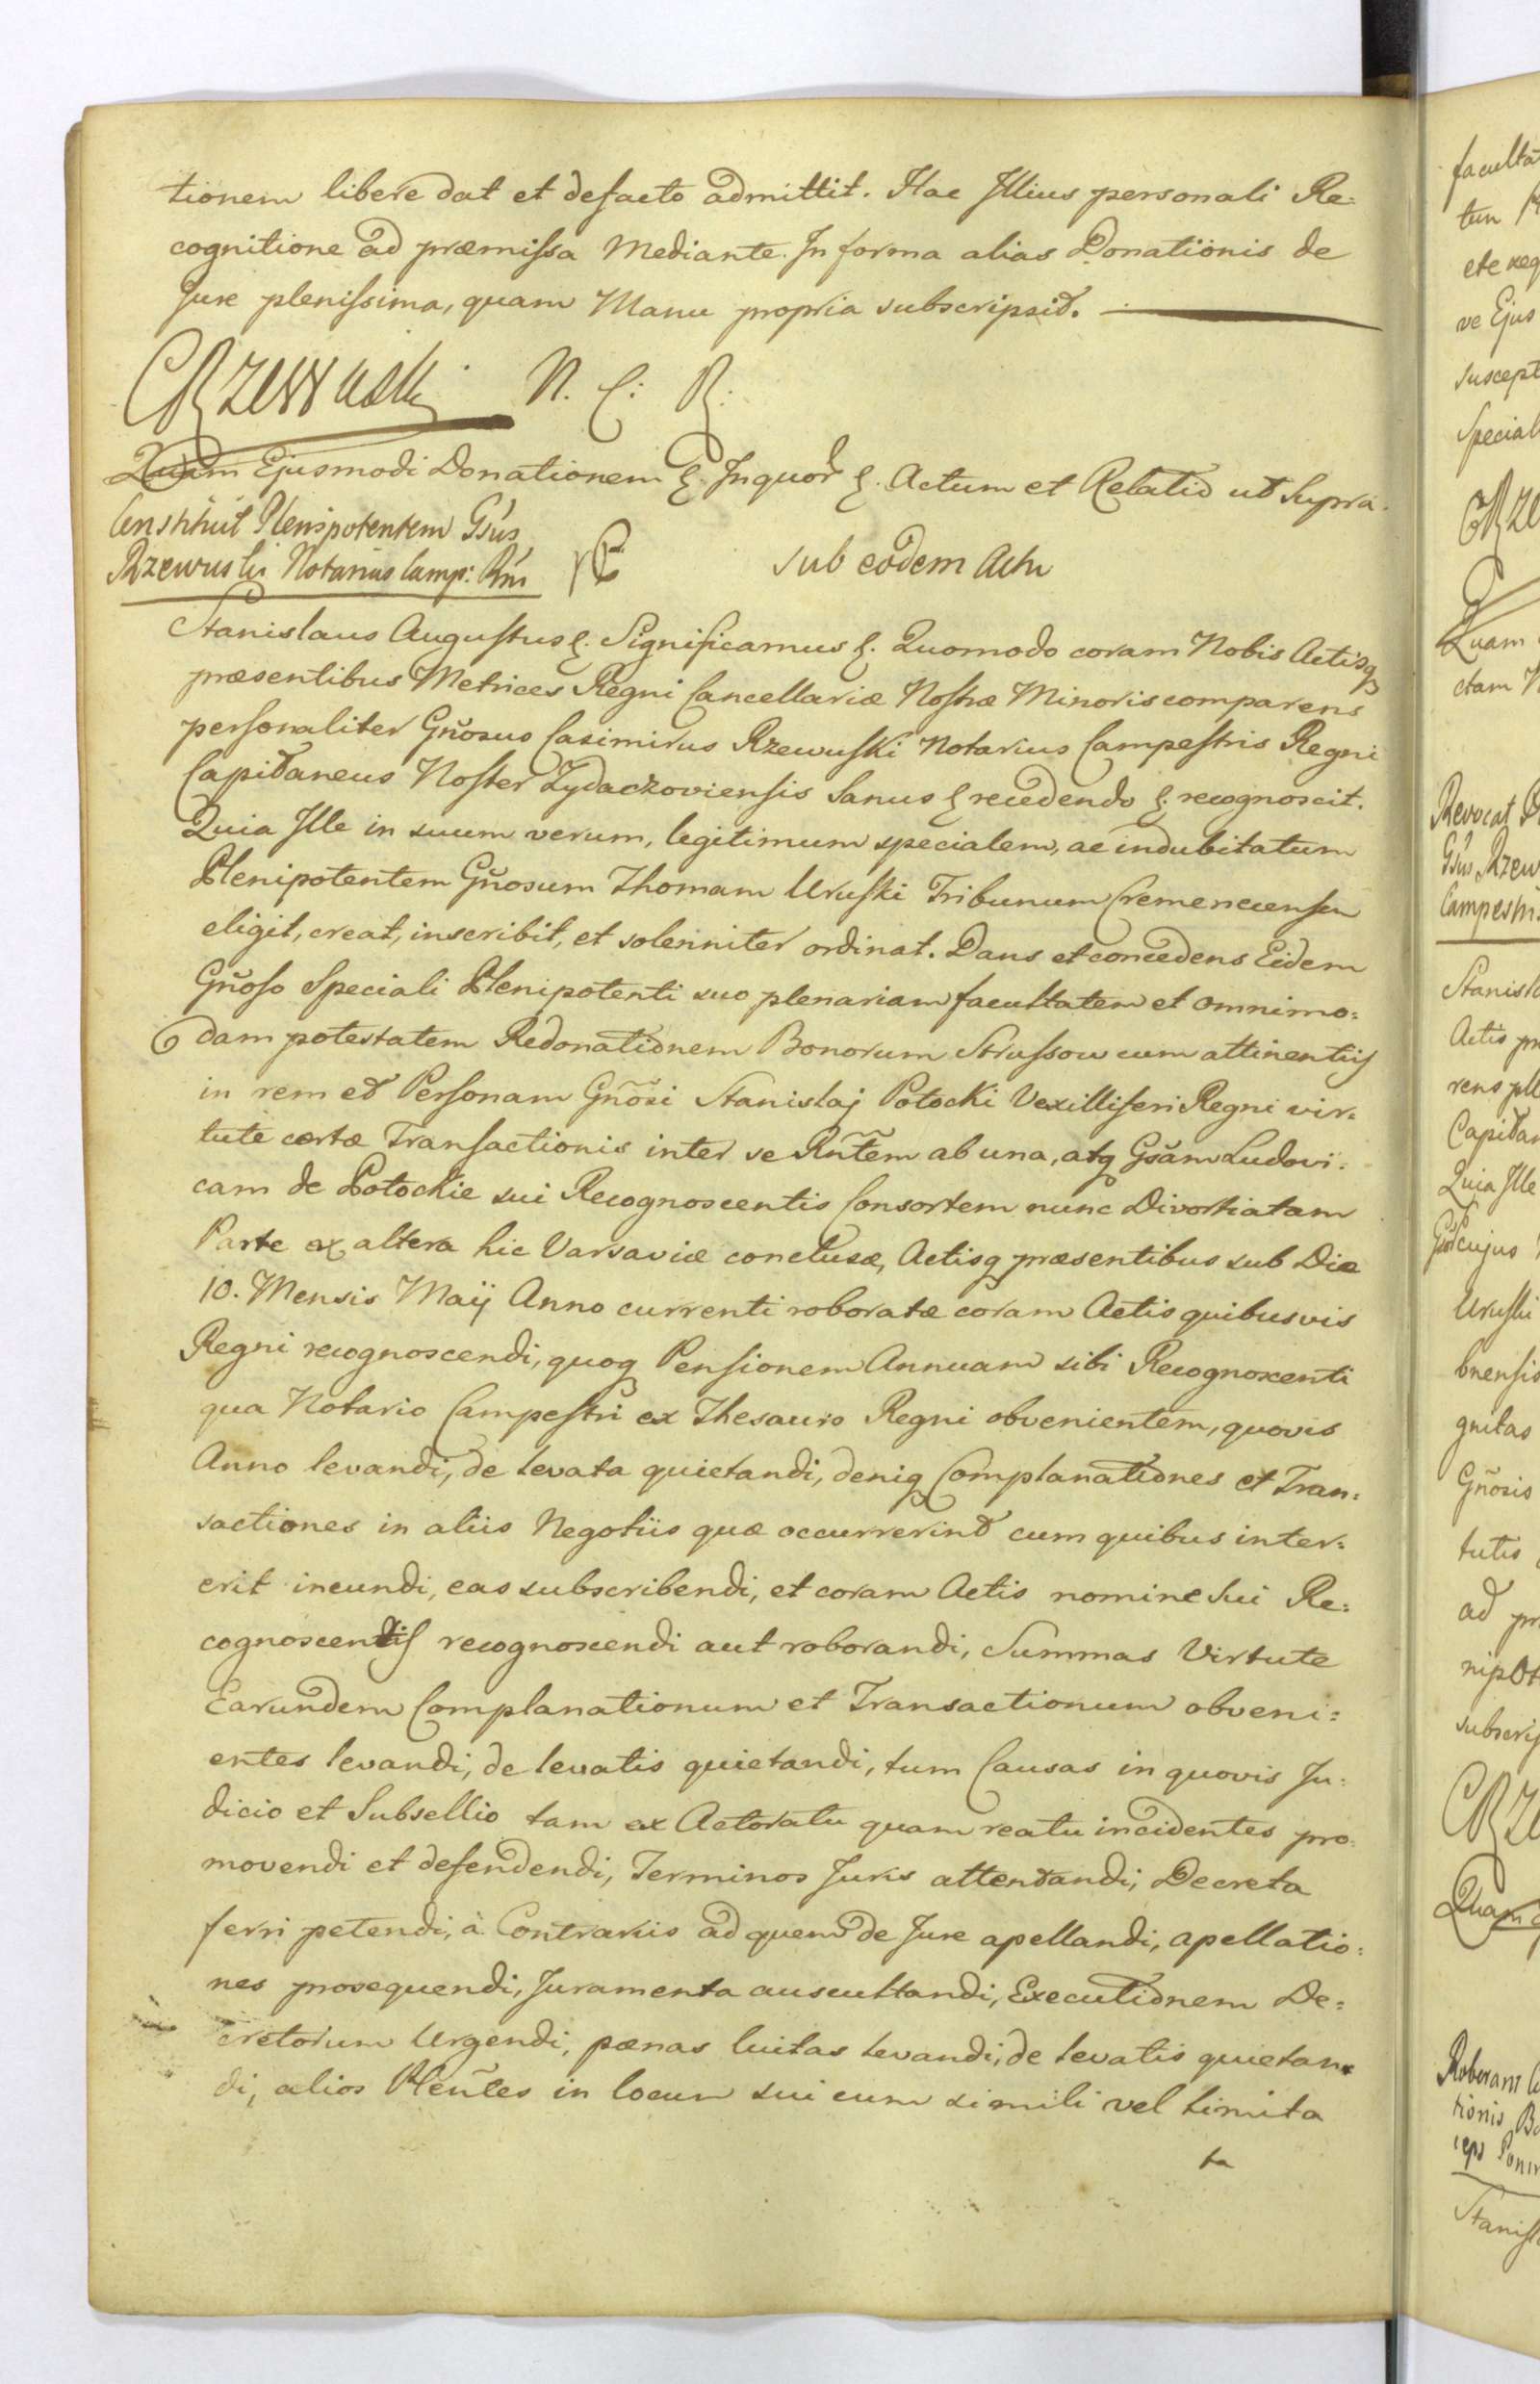 tionem libere dat et defacto admittit. Hac Illius personali Re:
cognitione ad præmissa Mediante. In forma alias Donationis de
Jure plenissima, quam Manu propria subscripsit.
CRzewuski N. C: R:
Quam Ejusmodi Donationem &. In quor &. Actum et Relatio ut Supra.
Constituit Plenipotentem Gsus
Rzewuski Notarius Camp: Rni
sub eodem Actu
Stanislaus Augustus &. Significamus &. Quomodo coram Nobis Actisq
præsentibus Metrices Regni Cancellariæ Nostræ Minoris comparens
personaliter Gnosus Casimirus Rzewuski Notarius Campestris Regni
Capitaneus Noster Zydaczoviensis Sanus & recedendo &. recognoscit.
Quia Ille in suum verum, legitimum specialem, ac indubitatum
Plenipotentem Gnosum Thomam Uruski Tribunum Cremenecensem
eligit, creat, inscribit, et solenniter ordinat. Dans et concedens Eidem
Gnoso Speciali Plenipotenti suo plenariam facultatem et omnimo:
dam potestatem Redonationem Bonorum Strussow cum attinentiis
in rem et Personam Gnosi Stanislaj Potocki Vexilliferi Regni vir:
tute certæ Transactionis inter se Rntem ab una, atq Gsam Ludovi:
cam de Potockie sui Recognoscentis Consortem nunc Divortiatam
Parte ex altera hic Varsaviæ conclusæ, Actisq præsentibus sub Die
10. Mensis Maij Anno currenti roboratæ coram Actis quibusvis
Regni recognoscendi, quoq Pensionem Annuam sibi Recognoscenti
qua Notario Campestri ex Thesauro Regni obvenientem, quovis
Anno levandi, de levata quietandi, deniq Complanationes et Tran:
sactiones in aliis Negotiis quæ occurrerint cum quibus inter:
erit ineundi, eas subscribendi, et coram Actis nomine Sui Re:
cognoscentis recognoscendi aut roborandi, Summas Virtute
Earundem Complanationum et Transactionum obveni:
entes levandi, de levatis quietandi, tum Causas in quovis Ju:
dicio et Subsellio tam ex Actoratu quam reatu incidentes pro:
movendi et defendendi, Terminos Juris attentandi, Decreta
ferri petendi, à Contrariis ad quem de Jure apellandi, apellatio:
nes prosequendi, Juramenta auscultandi, Executionem De:
cretorum Urgendi, pænas luitas levandi, de levatis quietan:
di, alios Plentes in locum sui cum simili vel limita
ta